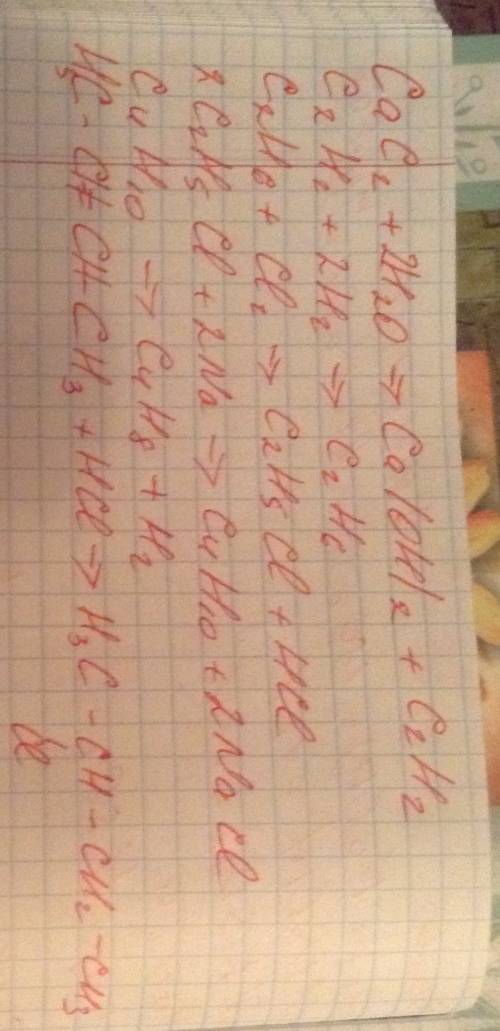 CaC₂ + 2H₂O → Ca(OH)₂ + C₂H₂
C₂H₂ + 2H₂ → C₂H₆
C₂H₆ + Cl₂ → C₂H₅Cl + HCl
2C₂H₅Cl + 2Na → C₄H₁₀ + 2NaCl
C₄H₁₀ → C₄H₈ + H₂
H₃C - CH = CH - CH₃ + HCl → H₃C - CH - CH₂ - CH₃
Cl